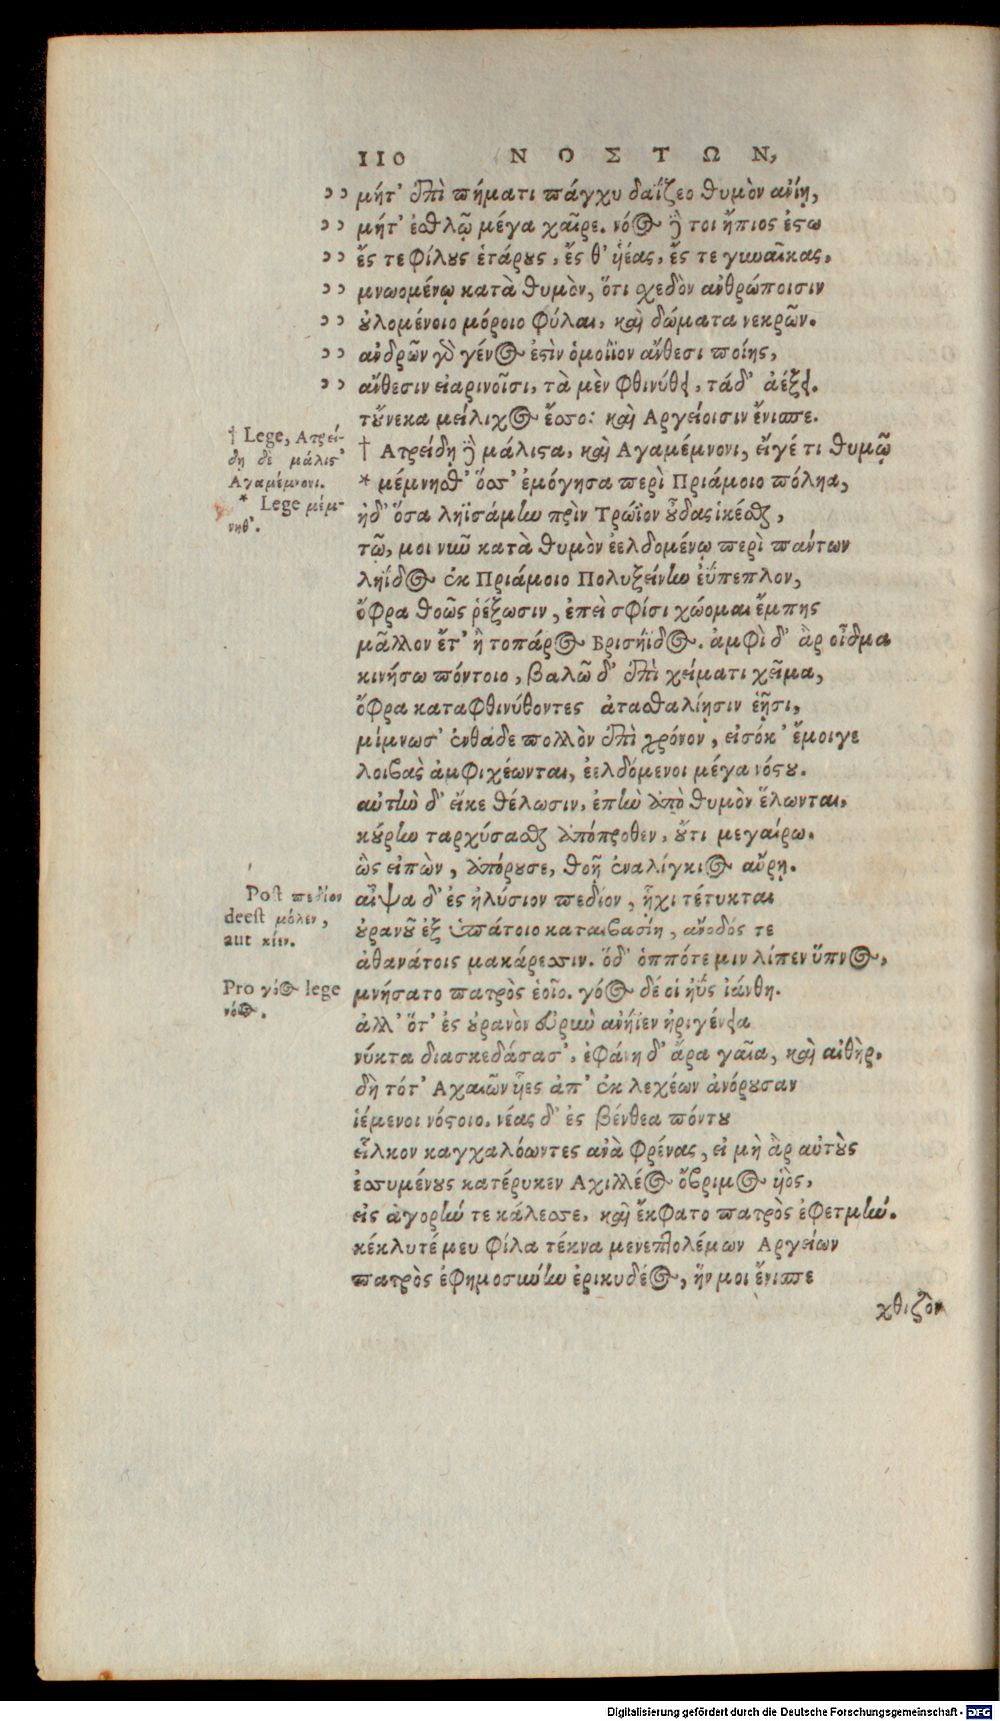 110 ΝΟΣΤΩΝ,
"" μήτ' ἐπὶ πήματι πάγχυ δαΐζεο θυμὸν ἀνίῃ,
"" μήτ' ἐσθλῷ μέγα χαῖρε. νόος δέ τοι ἤπιος ἔστω
"" ἔς τε φίλους ἑτάρους, ἔς θ' υἱέας, ἔς τε γυναῖκας,
"" μνωομένῳ κατὰ θυμὸν, ὅτι σχεδὸν ἀνθρώποισιν
"" οὐλομένοιο μόροιο φύλαι, καὶ δώματα νεκρῶν.
"" ἀνδρῶν γὸ γένος ἐστὶν ὁμοίϊον ἄνθεσι ποίης,
"" ἄνθεσιν εἰαρινοῖσι, τὰ μὲν φθινύθει, τάδ' ἀέξει.
τοὔνεκα μείλιχος ἔσσο: καὶ Αργείοισιν ἔνισπε.
† Ατρείδῃ δὲ μάλιστα, καὶ Αγαμέμνονι, εἴγέ τι θυμῷ
† Lege, Ατρεί-
δῃ δὲ μάλισ'
Αγαμέμνονι.
* μέμνησθ' ὅσσ' ἐμόγησα περὶ Πριάμοιο πόληα,
* Lege μέμ-
νηθ'.
ἠδ' ὅσα ληϊσάμην πρὶν Τρώϊον οὖδας ἱκέσθαι,
τῷ, μοι νῦν κατὰ θυμὸν ἐελδομένῳ περὶ πάντων
ληΐδος ἐκ Πριάμοιο Πολυξείνην ἐΰπεπλον,
ὄφρα θοῶς ῥέξωσιν, ἐπεὶ σφίσι χώομαι ἔμπης
μᾶλλον ἔτ' ἢ τοπάρος Βρισηΐδος. ἀμφὶ δ' ἂρ οἶδμα
κινήσω πόντοιο, βαλῶ δ' ἐπὶ χείματι χεῖμα,
ὄφρα καταφθινύθοντες ἀτασθαλίῃσιν ἑῇσι,
μίμνωσ' ἐνθάδε πολλὸν ἐπὶ χρόνον, εἰσόκ' ἔμοιγε
λοιβὰς ἀμφιχέωνται, ἐελδόμενοι μέγα νόστου.
αὐτὴν δ' εἴκε θέλωσιν, ἐπὴν ἀπὸ θυμὸν ἕλωνται,
κούρην ταρχύσασθαι ἀπόπροθεν, οὔτι μεγαίρω.
ὣς εἰπὼν, ἀπόρουσε, θοῇ ἐναλίγκιος αὔρῃ.
αἶψα δ' ἐς ἠλύσιον πεδίον, ἧχι τέτυκται
Post πεδίον
deest μόλεν,
aut κίεν.
οὐρανοῦ ἐξ ὑπάτοιο καταιβασίη, ἄνοδός τε
ἀθανάτοις μακάρεσσιν. ὅδ' ὁππότε μιν λίπεν ὕπνος,
μνήσατο πατρὸς ἑοῖο. γόος δέ οἱ ἠῢς ἰάνθη.
Pro γόος lege
νόος.
ἀλλ' ὅτ' ἐς οὐρανὸν εὐρὺν ἀνήϊεν ἠριγένεια
νύκτα διασκεδάσασ', ἐφάνη δ' ἄρα γαῖα, καὶ αἰθὴρ.
δὴ τότ' Αχαιῶν υἷες ἀπ' ἐκ λεχέων ἀνόρουσαν
ἱέμενοι νόστοιο. νέας δ' ἐς βένθεα πόντου
εἷλκον καγχαλόωντες ἀνὰ φρένας, εἰ μὴ ἂρ αὐτοὺς
ἐσσυμένους κατέρυκεν Αχιλλέος ὄβριμος υἱὸς,
εἰς ἀγορήν τε κάλεσσε, καὶ ἔκφατο πατρὸς ἐφετμήν.
κέκλυτέ μευ φίλα τέκνα μενεπτολέμων Αργείων
πατρὸς ἐφημοσύνην ἐρικυδέος, ἥν μοι ἔνισπε
χθιζὸν
Digitalisierung gefördert durch die Deutsche Forschungsgemeinschaft - DFG